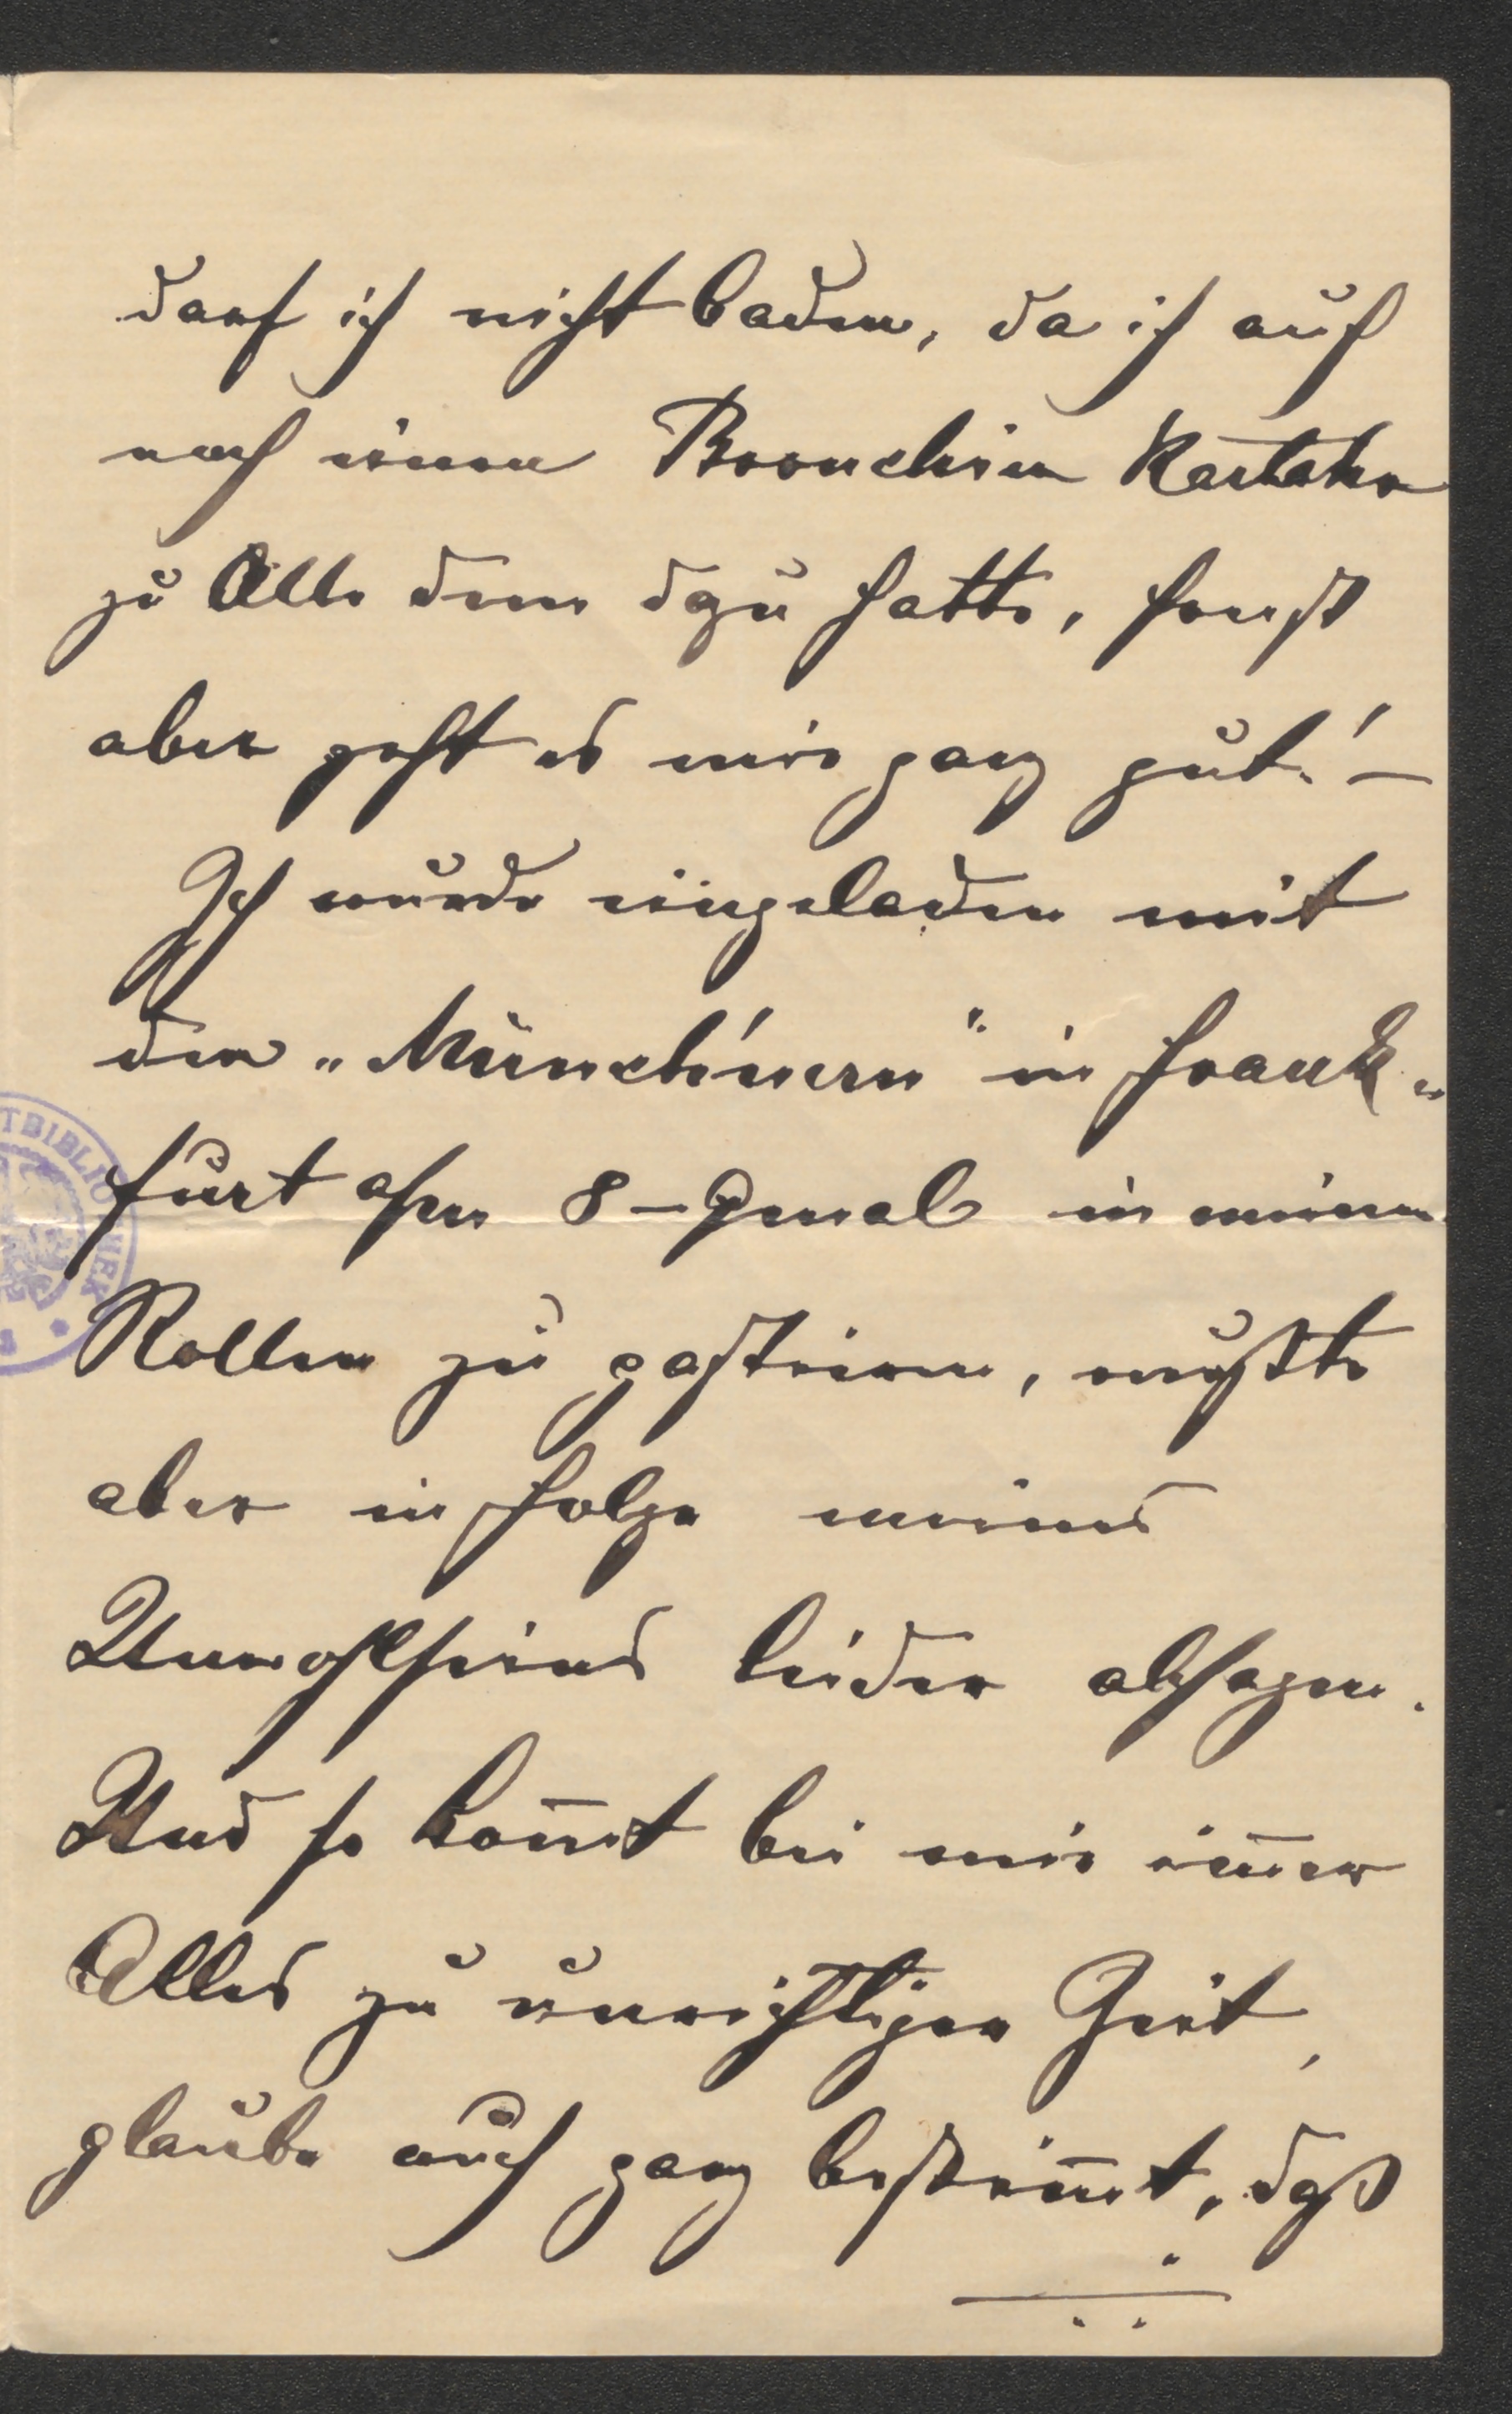 darf ich nicht baden, da ich auch
noch einen Bronchien Kartahr
zu Alle dem dazu hatte, sonst
aber geht es mir ganz gut! –
Ich wurde eingeladen mit
den „Münch'nern" in Frank„
furt a/m 8–9mal in meinen
Rollen zu gastiren, mußte
aber in Folge meines
Unwohlseins leider absagen.
Und so kom̅t bei mir im̅er
Alles zu unrichtiger Zeit,
glaube auch ganz bestim̅t, daß